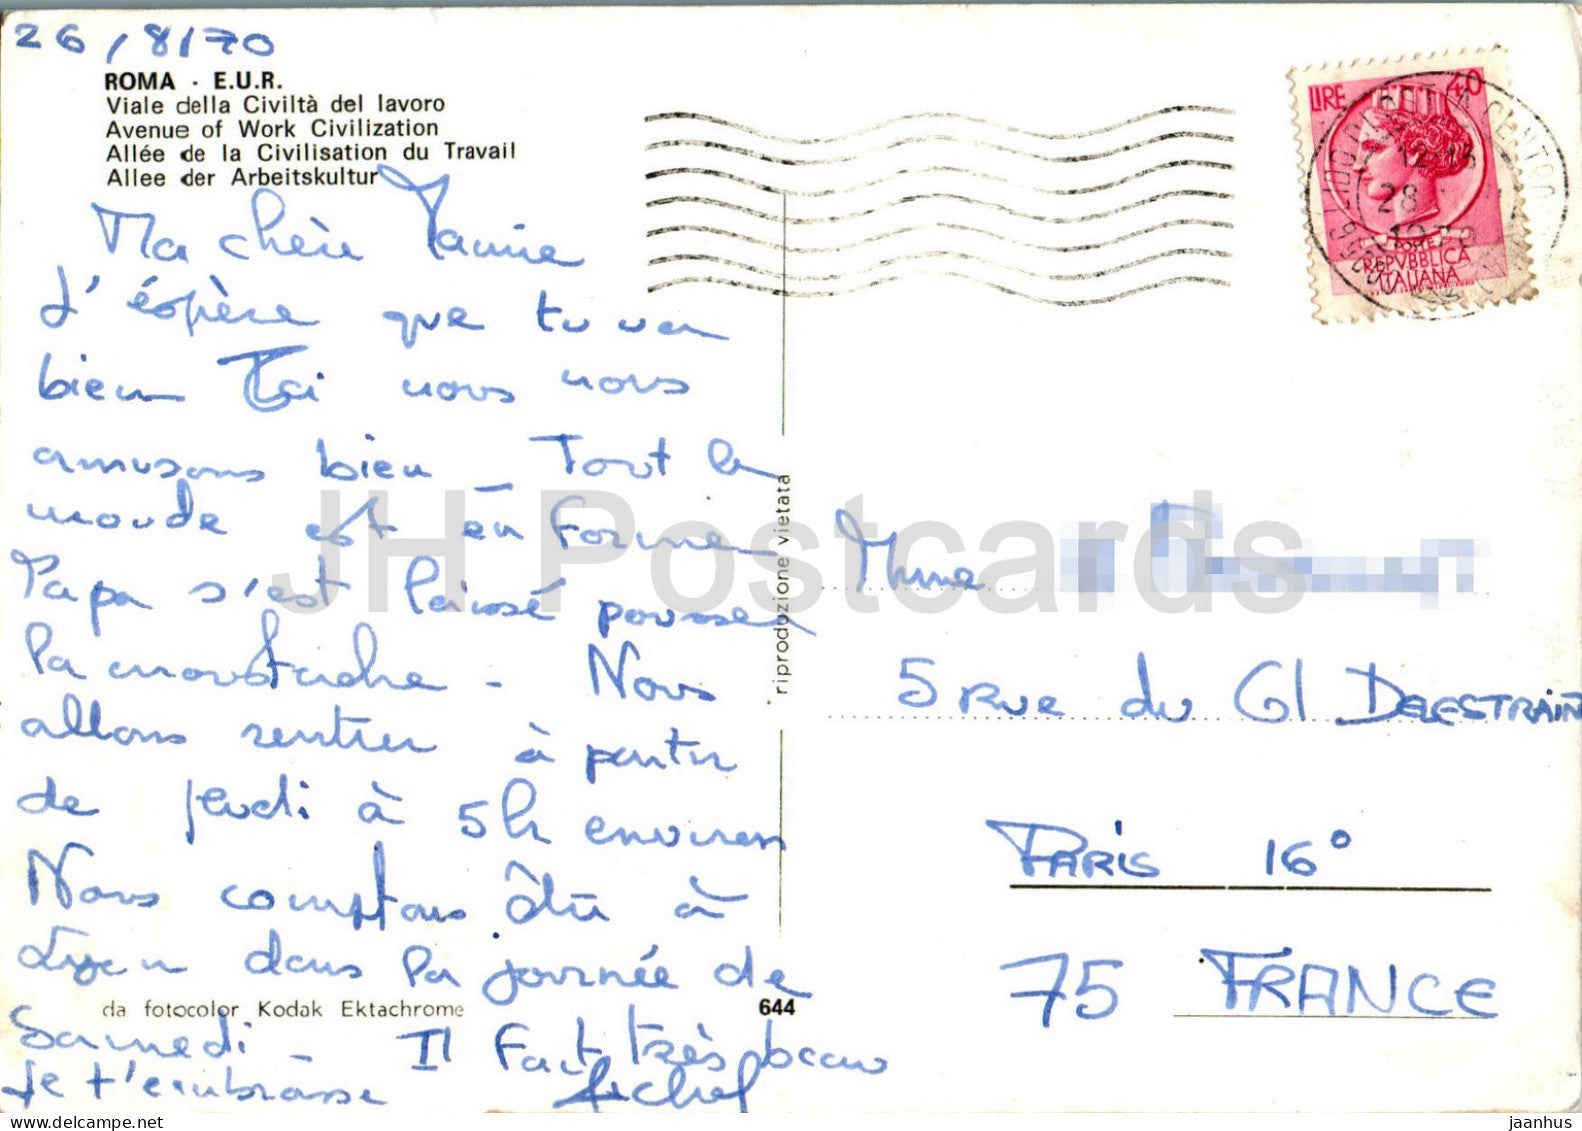 26/8/70
ROMA - E.U.R.
Viale della Civiltà del lavoro
Avenue of Work Civilization
Allée de la Civilisation du Travail
Allee der Arbeitskultur
Ma chère Mamie
J'éspère que tu vas
bien Toi nous nous
amusons bien _ Tout le
monde est en forme
Papa s'est laissé pousser
la moustache - Nous
allons rentrer à partir
de jeudi à 5h environ
Nous comptons être à
Lyon dans la journée de
Samedi - Il Fait très beau
Je t'embrasse
da fotocolor Kodak Ektachrome
644
riproduzione vietata
LIRE 40
REPVBBLICA
ITALIANA
12-15
28
Mme
5 Rue du Gl DELESTRAINT
PARIS 16°
75 FRANCE
JH Postcards
delcampe.net
jaanhus